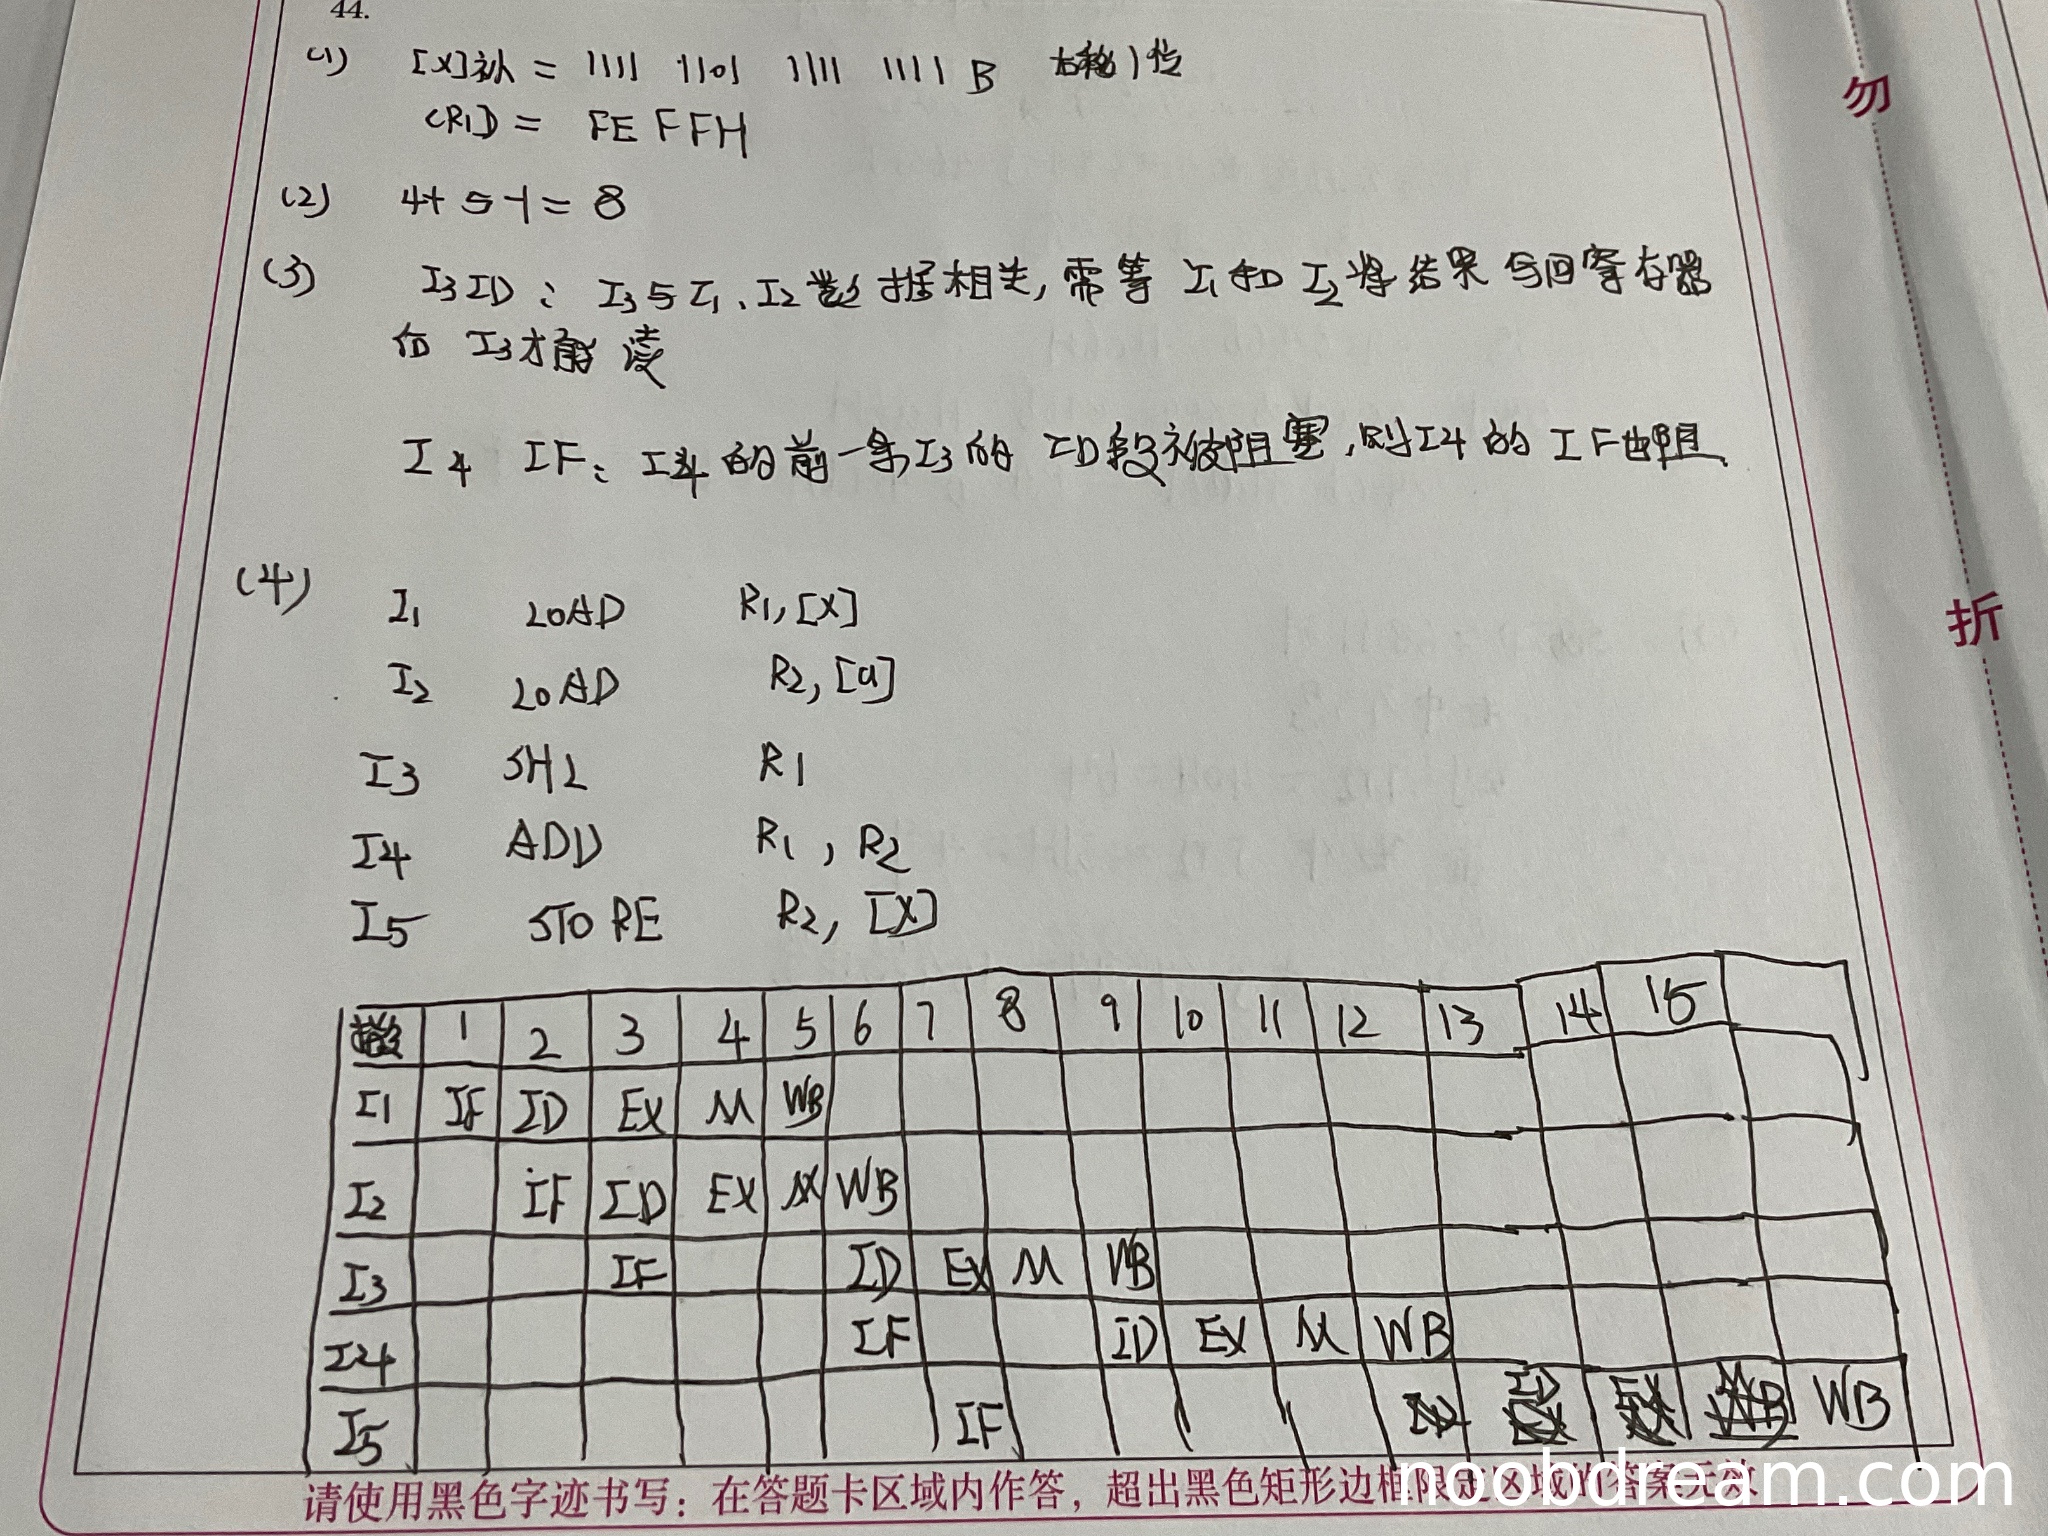 44.
(1) [x]补 = 1111 1101 1111 1111 B 右移1位
(R1) = FEFFH
(2) 4+5-1=8
(3) I3 ID: I3与I1、I2数据相关,需等I1和I2将结果写回寄存器
后I3才能读
I4 IF: I4的前一条I3的ID段被阻塞,则I4的IF也阻
(4) I1 LOAD R1,[x]
I2 LOAD R2,[a]
I3 SHL R1
I4 ADD R1, R2
I5 STORE R2, [x]
1 2 3 4 5 6 7 8 9 10 11 12 13 14 15
I1 IF ID EX M WB
I2 IF ID EX M WB
I3 IF ID EX M WB
I4 IF ID EX M WB
I5 IF ID EX WB
请使用黑色字迹书写;在答题卡区域内作答,超出黑色矩形边框限定区域的答案无效
noobdream.com
勿
折